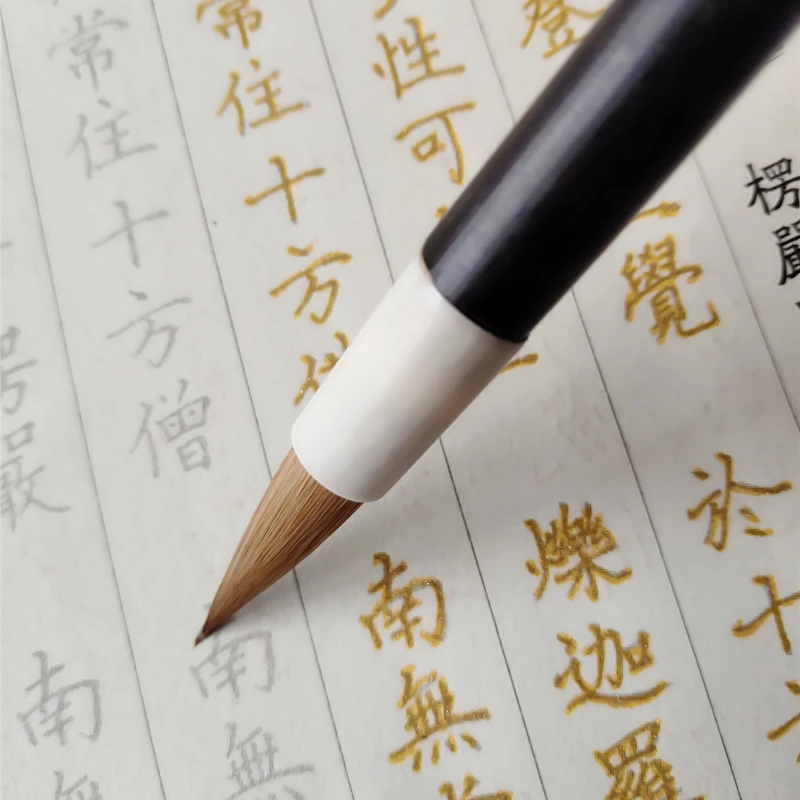 楞嚴
登覺於十
性可爍迦羅
常住十方南無
常住十方僧南無
嚴南